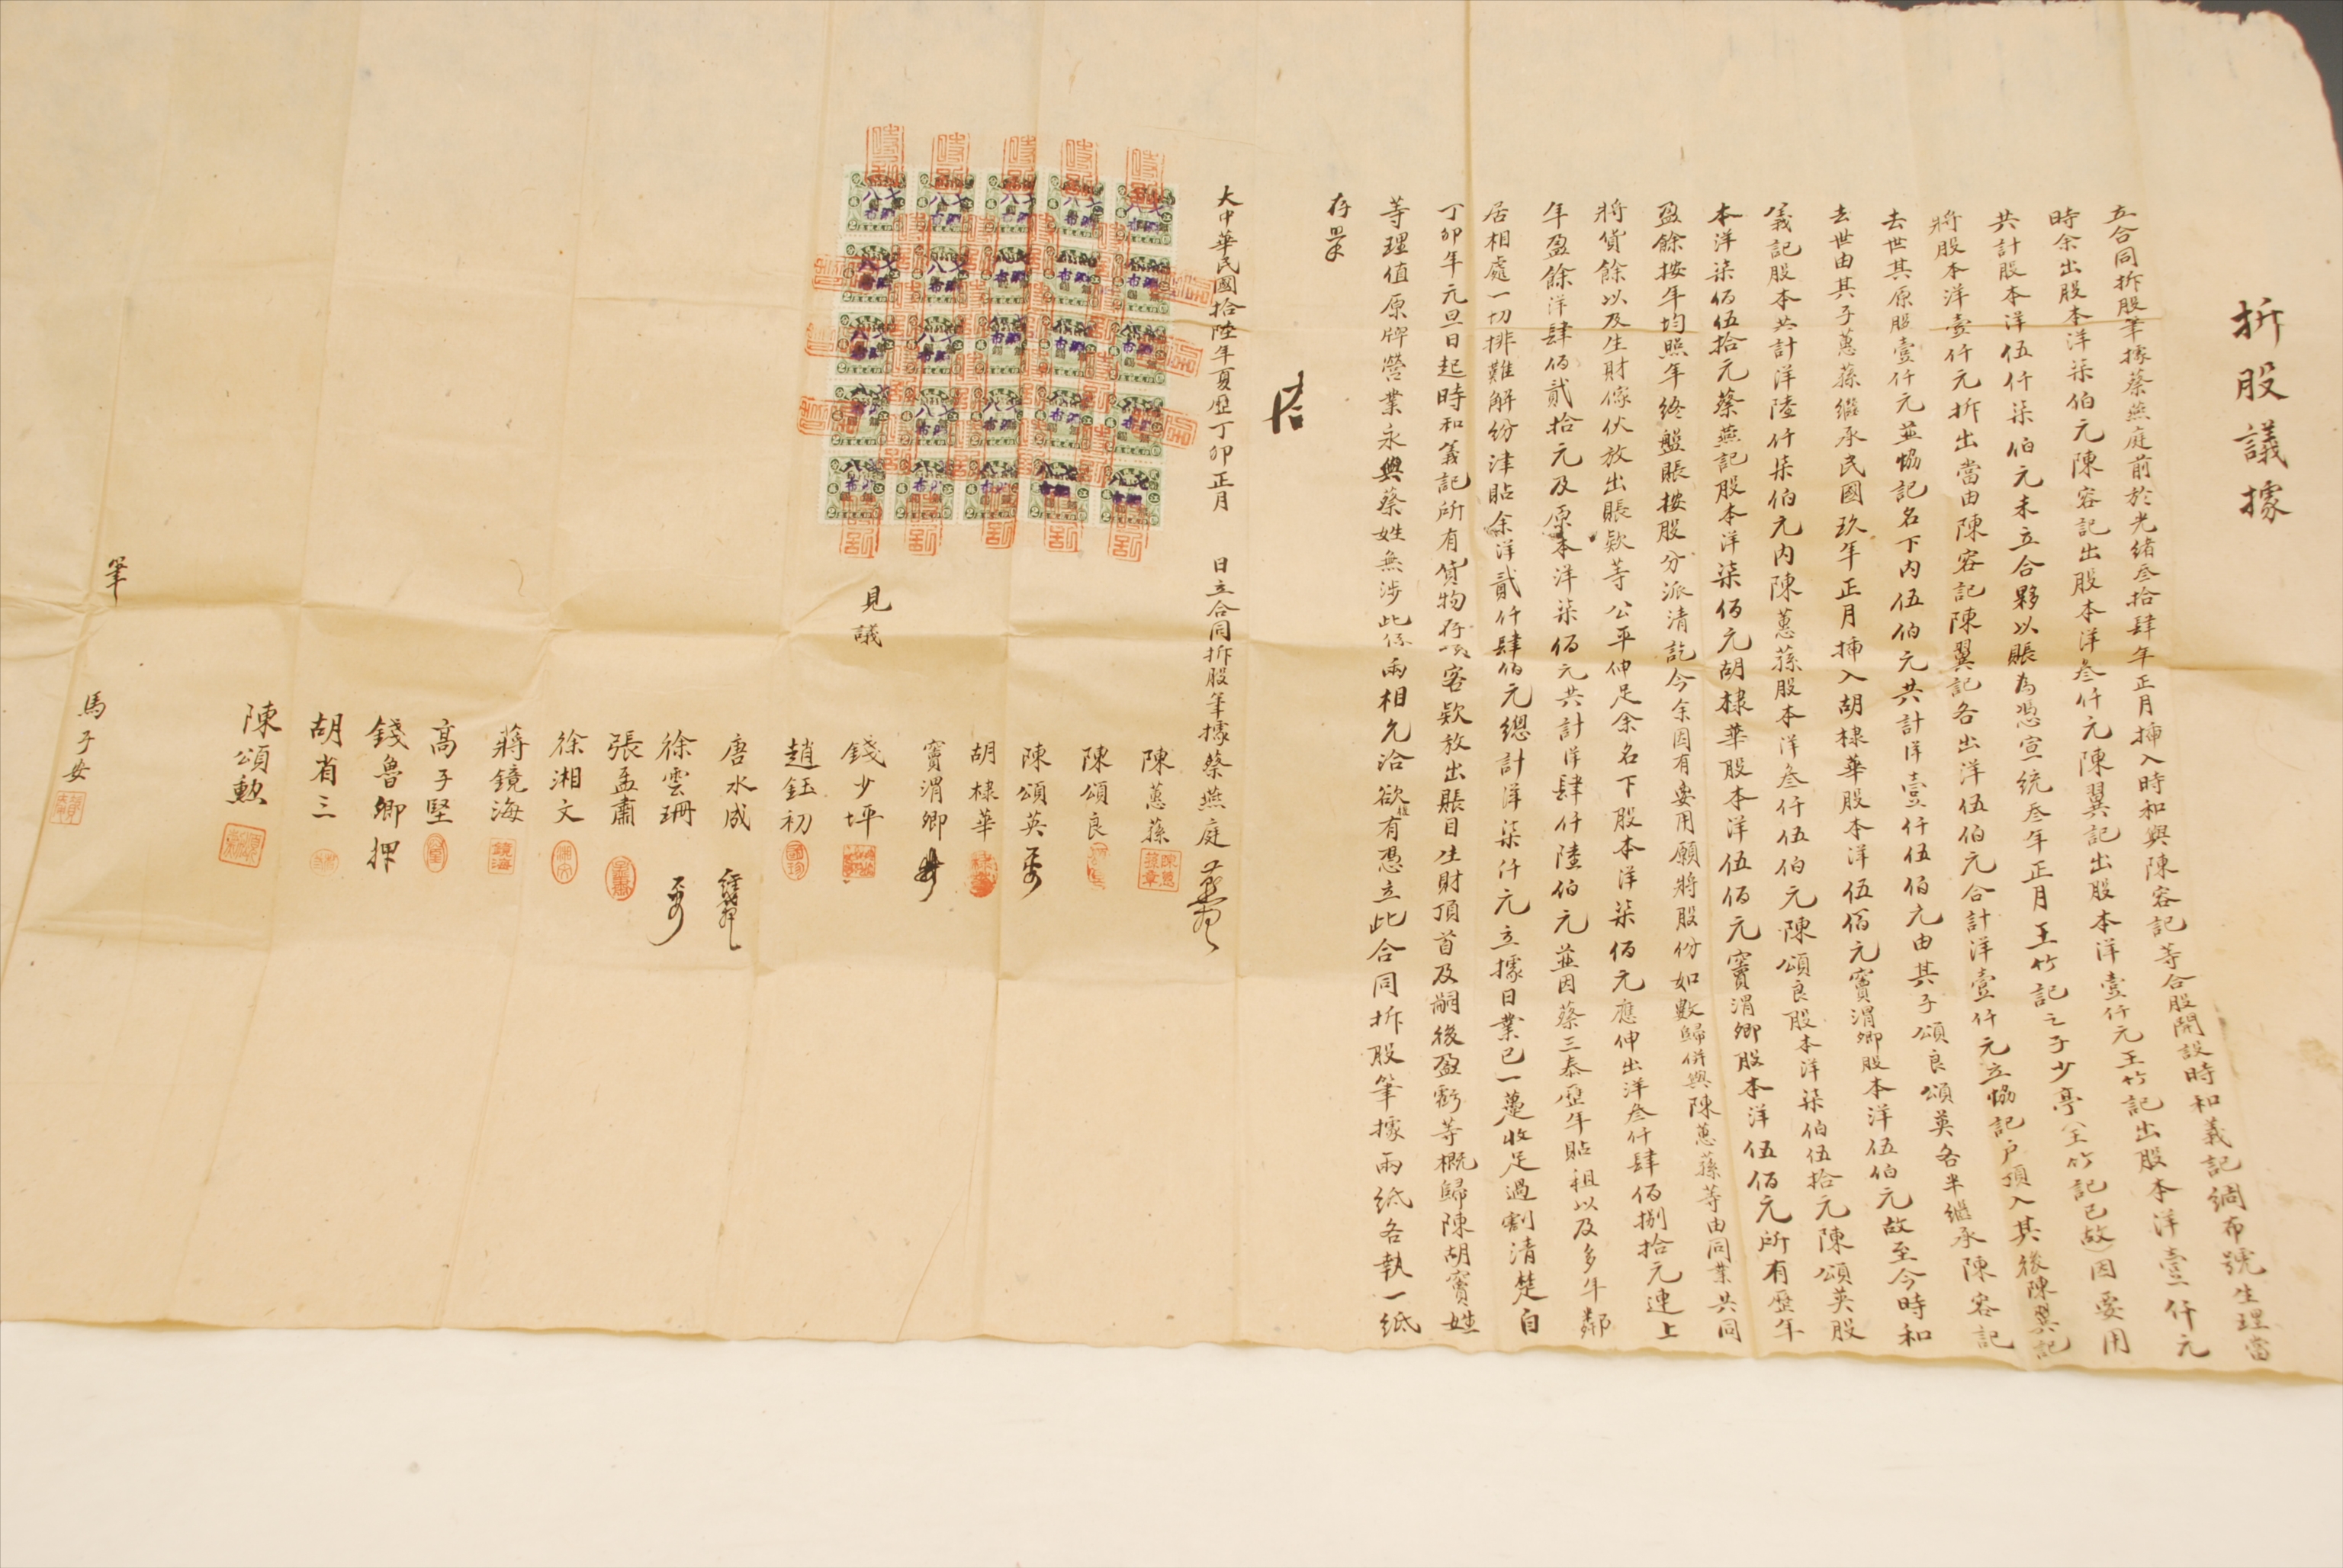 拆股議據
立合同拆股筆據蔡燕庭前於光緒叁拾肆年正月揷入時和與陳容記等合股開設時和義記綢布號生理當
時余出股本洋柒伯元陳容記出股本洋叁仟元陳翼記出股本洋壹仟元王竹記出股本洋壹仟元
共計股本洋伍仟柒伯元未立合夥以賬為憑宣統叁年正月王竹記之子少亭(王竹記已故)因要用
將股本洋壹仟元拆出當由陳容記陳翼記各出洋伍伯元合計洋壹仟元立協記户頂入其後陳翼記
去世其原股壹仟元並協記名下內伍伯元共計洋壹仟伍伯元由其子頌良頌英各半繼承陳容記
去世由其子蕙蓀繼承民國玖年正月揷入胡棣華股本洋伍佰元竇渭卿股本洋伍伯元故至今時和
義記股本共計洋陸仟柒伯元內陳蕙蓀股本洋叁仟伍伯元陳頌良股本洋柒伯伍拾元陳頌英股
本洋柒佰伍拾元蔡燕記股本洋柒佰元胡棣華股本洋伍佰元竇渭卿股本洋伍佰元所有歷年
盈餘按年均照年終盤賬按股分派清訖今余因有要用願將股份如數歸併與陳蕙蓀等由同業共同
將貨餘以及生財傢伙放出賬欵等公平伸足余名下股本洋柒佰元應伸出洋叁仟肆佰捌拾元連上
年盈餘洋肆佰貳拾元及原本洋柒佰元共計洋肆仟陸伯元並因蔡三泰歷年貼租以及多年鄰
居相處一切排難解紛津貼余洋貳仟肆伯元總計洋柒仟元立據日業已一躉收足過割清楚自
丁卯年元旦日起時和義記所有貨物存項客欵放出賬目生財頂首及嗣後盈虧等概歸陳胡竇姓
等理值原牌營業永與蔡姓無涉此係兩相允洽欲後有憑立此合同拆股筆據兩紙各執一紙
存照
大中華民國拾陸年夏歷丁卯正月 日立合同拆股筆據蔡燕庭
陳蕙蓀
陳頌良
陳頌英
胡棣華
竇渭卿
見議
錢少坪
趙鈺初
唐水成
徐雲珊
張孟肅
徐湘文
蔣鏡海
高子堅
錢魯卿 押
胡省三
陳頌勲
筆 馬子安